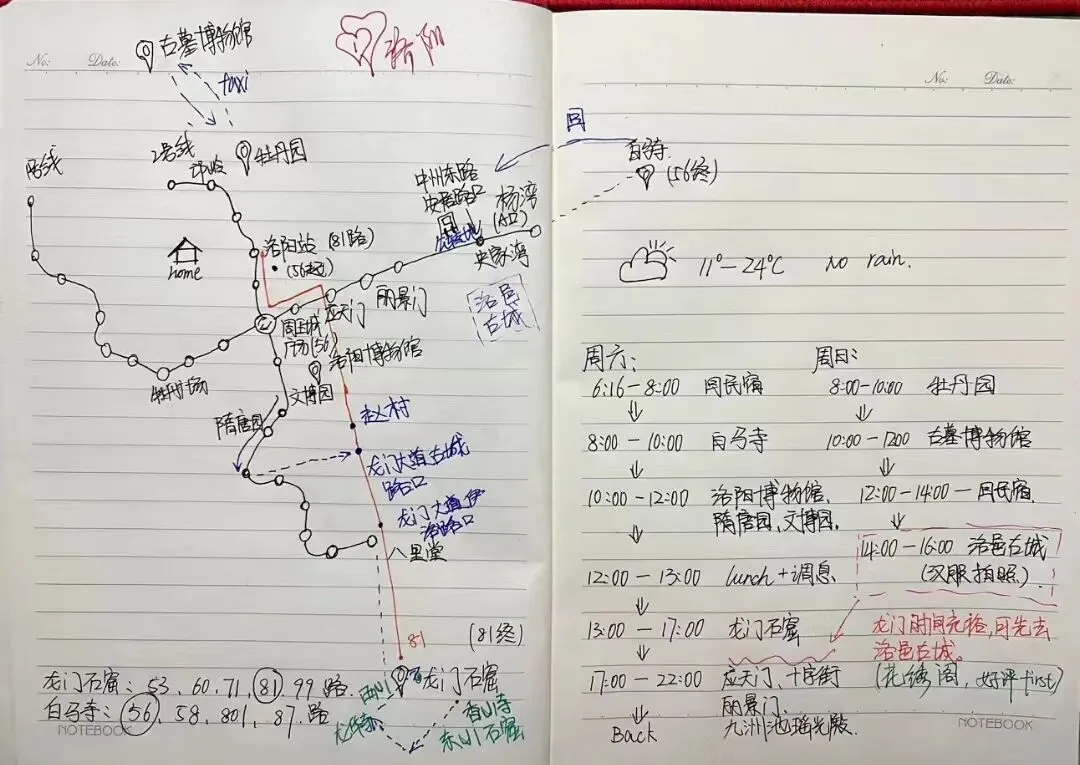 No:
Date:
古墓博物馆
洛阳
taxi
2号线
牡丹园
邙岭
1号线
home
洛阳站 (81路)
(56起)
中州东路
史家湾
杨湾
(A口)
丽景门
应天门
洛邑
古城
周王城
广场(56)
洛阳博物馆
牡丹广场
文博园
隋唐园
赵村
龙门大道古城
路口
龙门大道伊
洛路口
八里堂
81
(81终)
龙门石窟: 53、60、71、81、99路.
白马寺: 56、58、801、87、路
西山
龙门石窟
香山寺
东山石窟
NOTEBOOK
No:
Date:
回
白马寺.
(56终)
11°—24℃ No rain.
周六:
6:16—8:00 回民宿
8:00—10:00 白马寺
10:00—12:00 洛阳博物馆、
隋唐园、文博园.
12:00—13:00 lunch+调息
13:00—17:00 龙门石窟
17:00—22:00 应天门、十字街
丽景门.
九洲池瑶光殿.
Back
周日:
8:00-10:00 牡丹园
10:00—1200 古墓博物馆
12:00—14:00—回民宿.
14:00—16:00 洛邑古城
(汉服拍照)
龙门时间充裕,可先去
洛邑古城。
(花绣阁,好评first)
NOTEBOOK